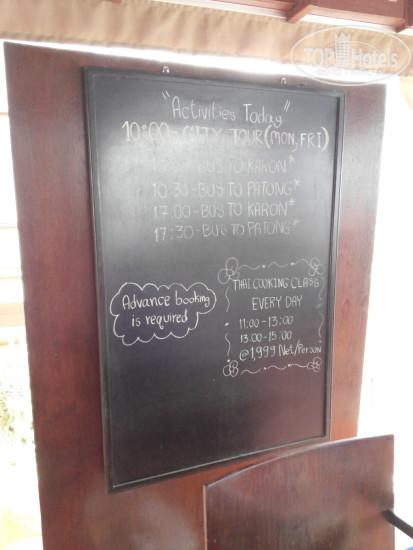 TOPHotels
"Activities Today"
10:00-CITY TOUR(MON,FRI)
BUS TO KARON*
10:30-BUS TO PATONG*
17.00-BUS TO KARON*
17:30-BUS TO PATONG*
Advance booking
is required
THAI COOKING CLASS
EVERY DAY
11:00-13:00
13.00-15:00
@1,999 Net/Person